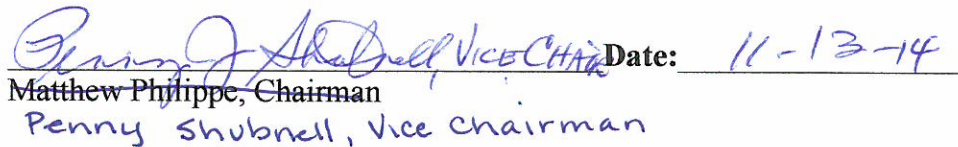 Penny J Shubnell, VICE CHAIR Date: 11-13-14
Matthew Philippe, Chairman
Penny Shubnell, Vice Chairman